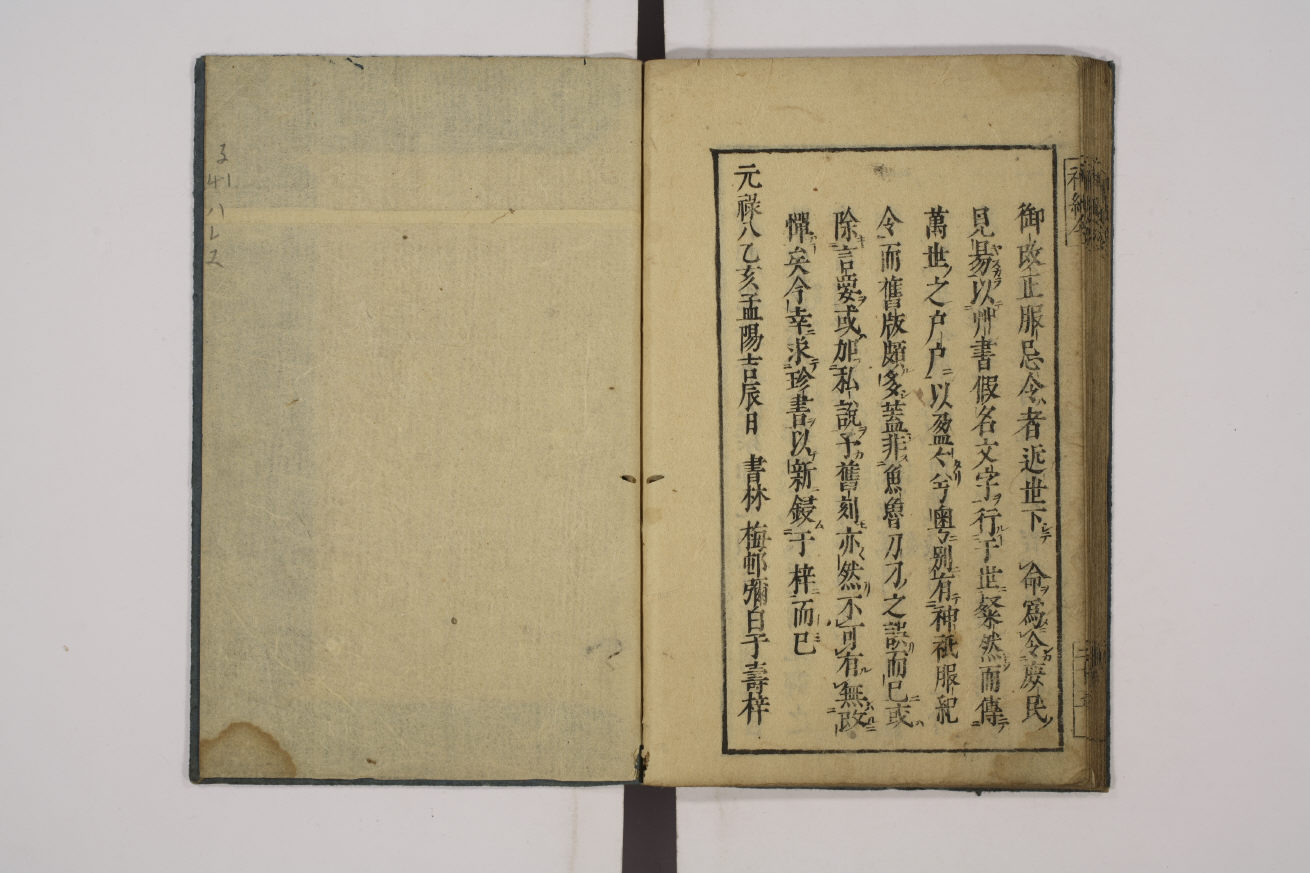 御改正服忌令者近世下命爲令庶民
見易以艸書假名文字行于世粲然而傳
萬世之戸戸以盈々兮輿別有神祇服紀
令而舊版頗多蓋非魚魯刀刁之誤而已或
除言要或加私説予舊刻亦然不可有無改
憚矣今幸求珍書以新鋟于梓而已
元禄八乙亥孟陽吉辰日 書林 梅邨彌白于壽梓